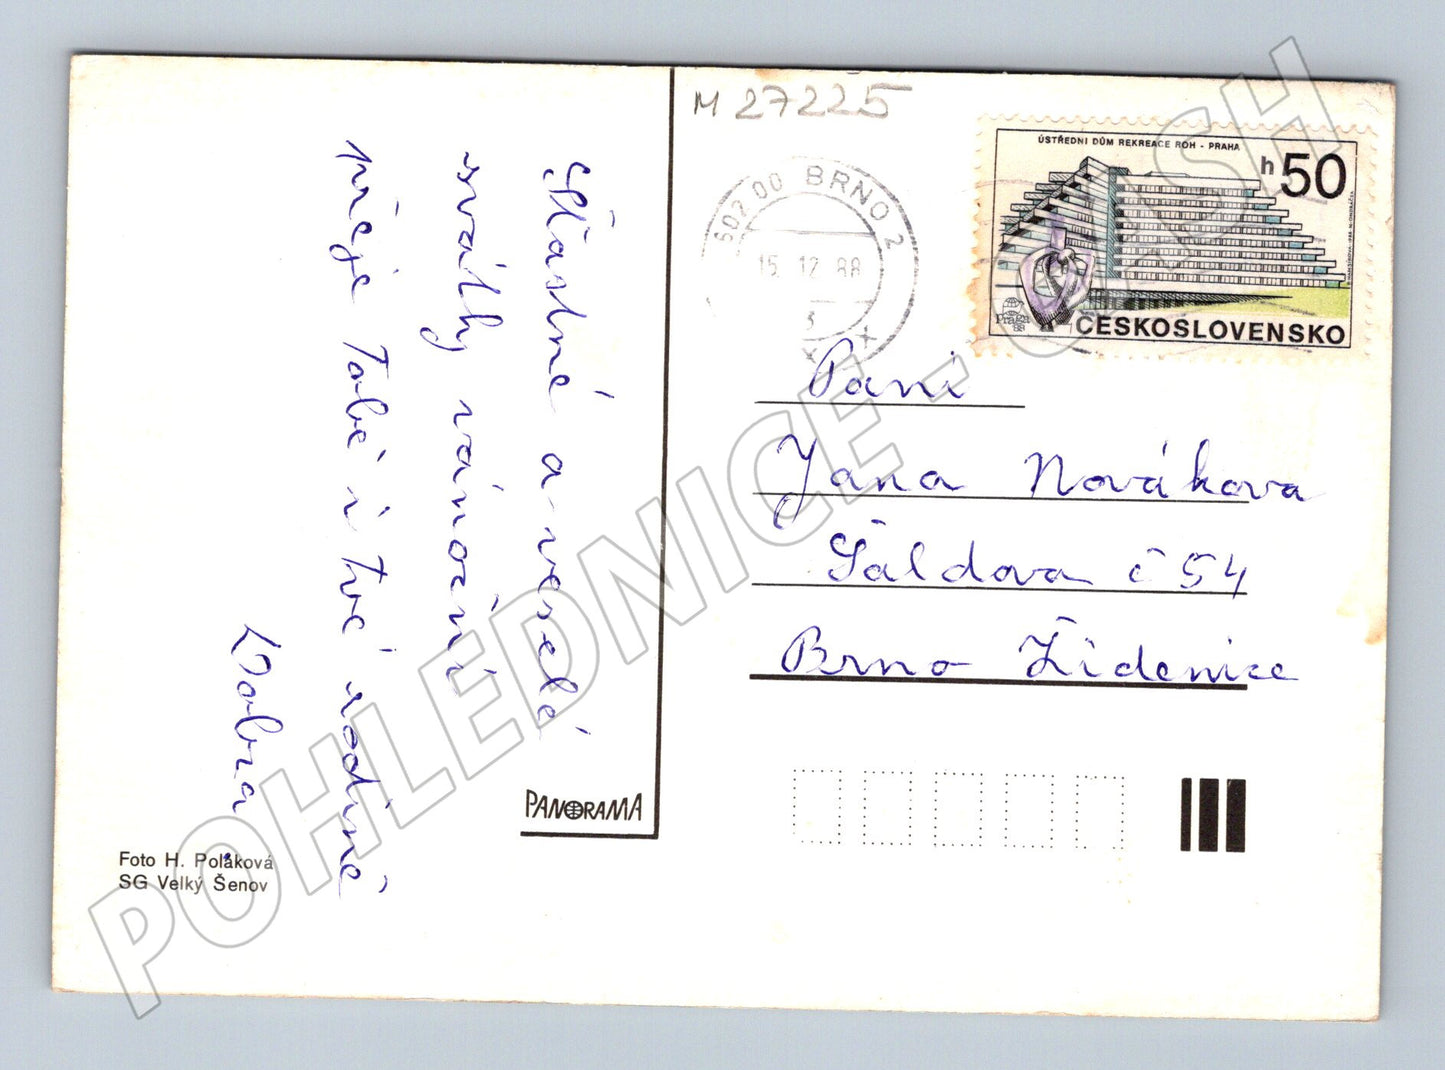 Šťastné a veselé
svátky vánoční
přeje Tobě i tvé rodině
Dobra
Foto H. Poláková
SG Velký Šenov
PANORAMA
M 27225
602 00 BRNO 2
15. 12. 88
3
x x
ÚSTŘEDNÍ DŮM REKREACE ROH - PRAHA
h50
Praga
88
ČESKOSLOVENSKO
Paní
Jana Nováková
Šaldova č 54
Brno Židenice
POHLEDNICE - CASH